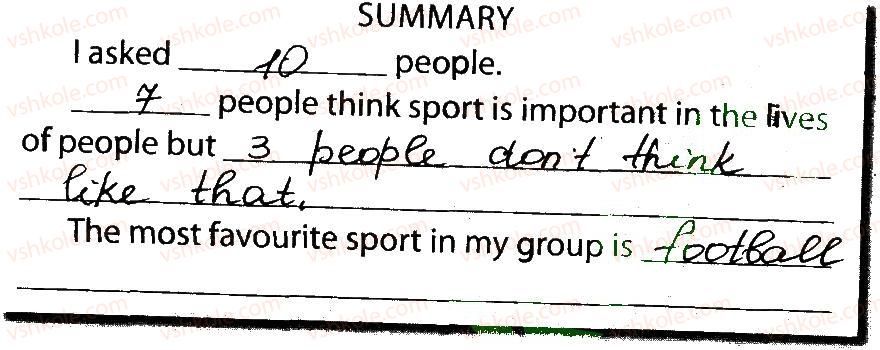 SUMMARY
I asked 10 people.
7 people think sport is important in the lives
of people but 3 people don't think
like that.
The most favourite sport in my group is football